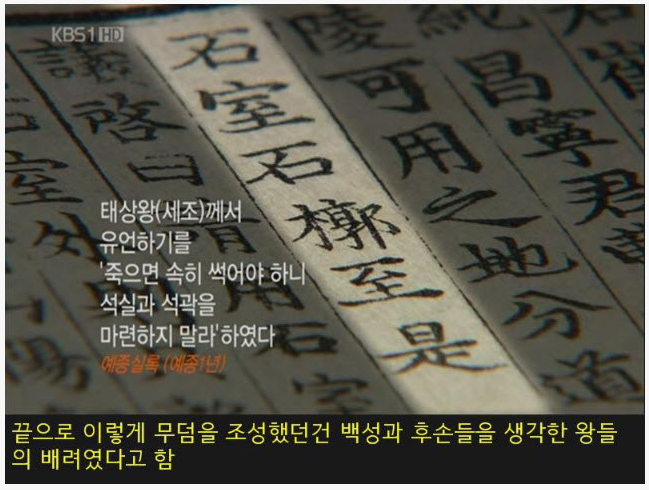 KBS1 HD
君崔
純昌寧君
陵可用之地分道
石室石槨至是
議啓曰
태상왕(세조)께서
유언하기를
'죽으면 속히 썩어야 하니
석실과 석관을
마련하지 말라'하였다
예종실록 (예종1년)
끝으로 이렇게 무덤을 조성했던건 백성과 후손들을 생각한 왕들
의 배려였다고 함